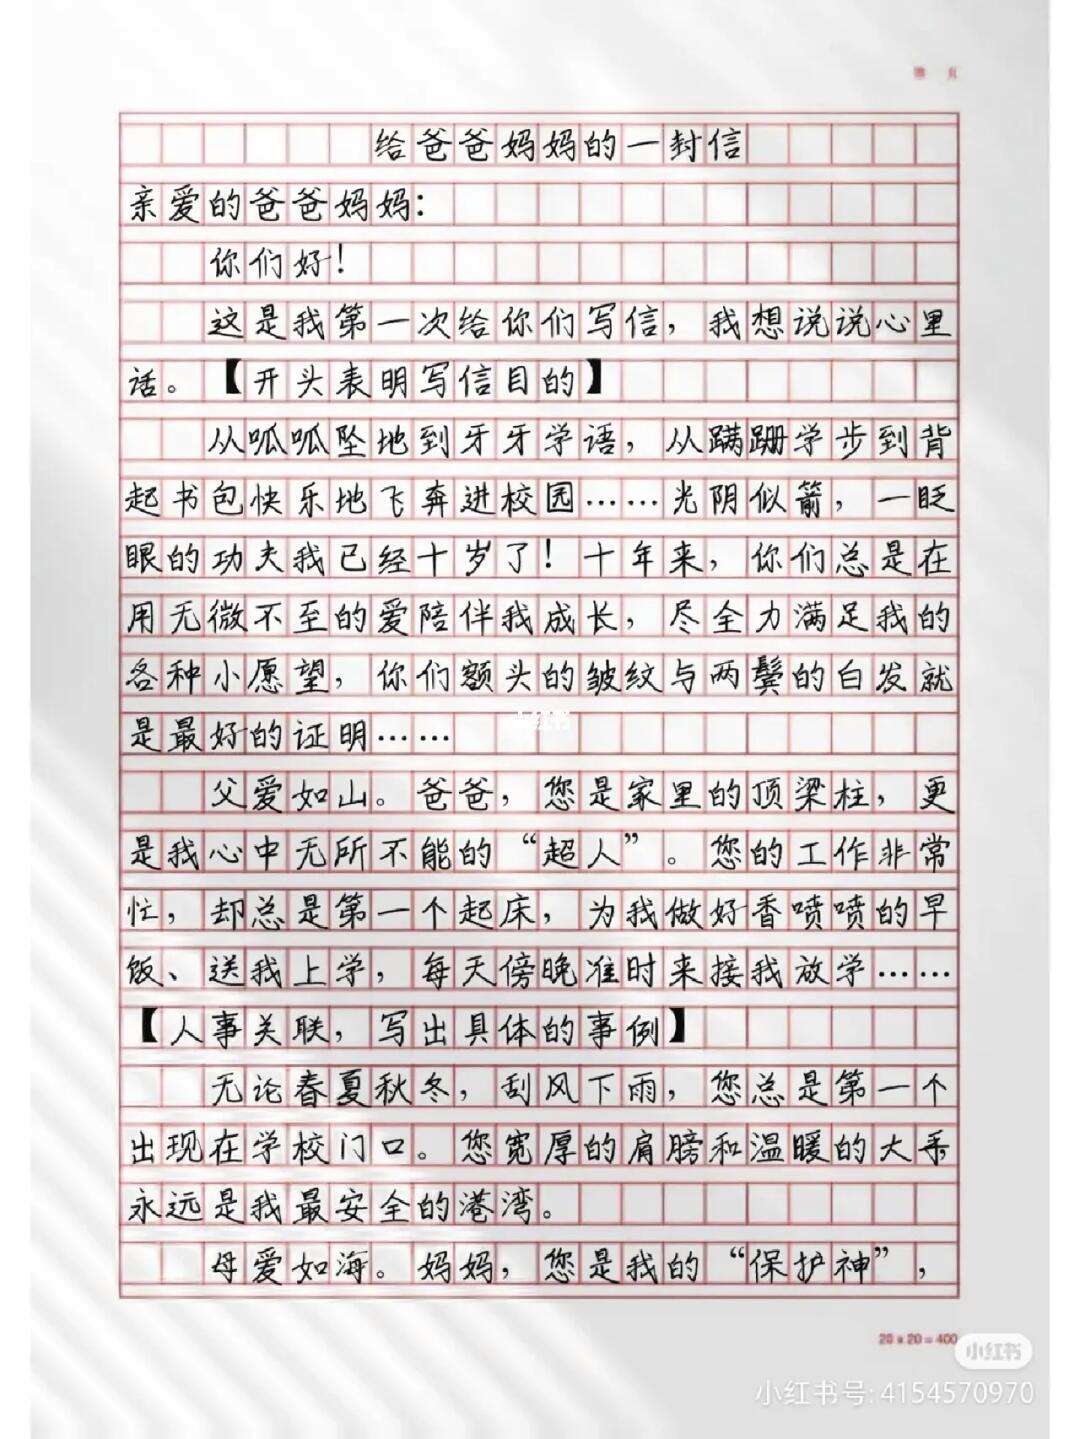 给爸爸妈妈的一封信
亲爱的爸爸妈妈：
你们好！
这是我第一次给你们写信，我想说说心里
话。【开头表明写信目的】
从呱呱坠地到牙牙学语，从蹒跚学步到背
起书包快乐地飞奔进校园……光阴似箭，一眨
眼的功夫我已经十岁了！十年来，你们总是在
用无微不至的爱陪伴我成长，尽全力满足我的
各种小愿望，你们额头的皱纹与两鬓的白发就
是最好的证明……
小红书
父爱如山。爸爸，您是家里的顶梁柱，更
是我心中无所不能的“超人”。您的工作非常
忙，却总是第一个起床，为我做好香喷喷的早
饭、送我上学，每天傍晚准时来接我放学……
【人事关联，写出具体的事例】
无论春夏秋冬，刮风下雨，您总是第一个
出现在学校门口。您宽厚的肩膀和温暖的大手
永远是我最安全的港湾。
母爱如海。妈妈，您是我的“保护神”，
20×20=400
小红书
小红书号：4154570970